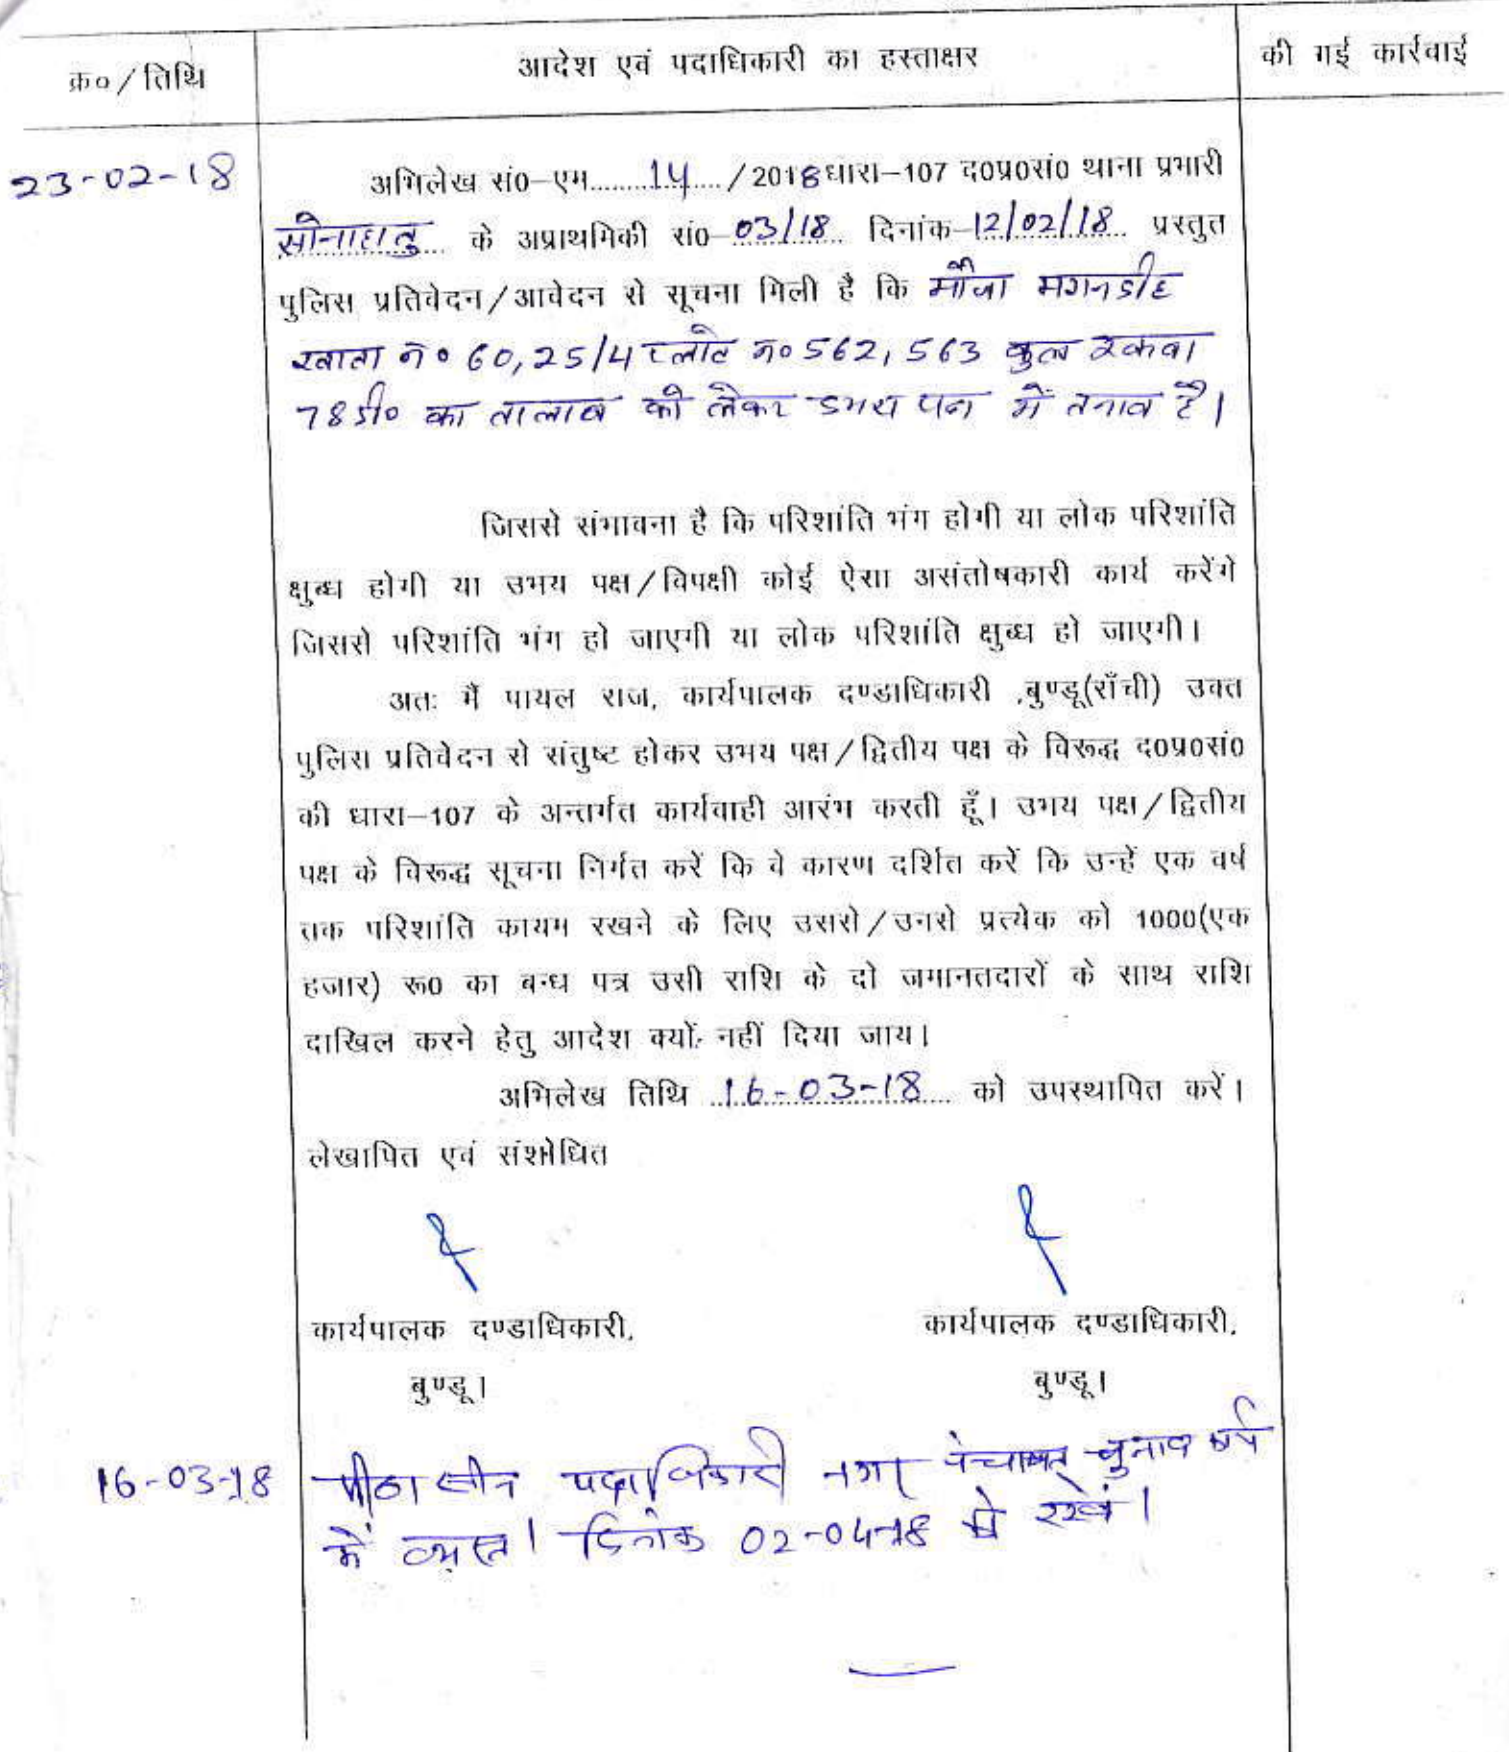 क्र० / तिथि
आदेश एवं पदाधिकारी का हस्ताक्षर
की गई कार्रवाई
23-02-18
अभिलेख सं0-एम.........14..../2018 धारा-107 द0प्र0सं0 थाना प्रभारी
सोनाहातु के अप्राथमिकी सं0 03/18 दिनांक-12/02/18 प्रस्तुत
पुलिस प्रतिवेदन/आवेदन से सूचना मिली है कि मौजा मगनडीह
खाता न० 60, 25/4 प्लॉट न० 562, 563 कुल रकवा
78 डी० का तालाब को लेकर उभय पक्ष में तनाव है।
जिससे संभावना है कि परिशांति भंग होगी या लोक परिशांति
क्षुब्ध होगी या उभय पक्ष/विपक्षी कोई ऐसा असंतोषकारी कार्य करेंगे
जिससे परिशांति भंग हो जाएगी या लोक परिशांति क्षुब्ध हो जाएगी।
अतः मैं पायल राज, कार्यपालक दण्डाधिकारी ,बुण्डू(राँची) उक्त
पुलिस प्रतिवेदन से संतुष्ट होकर उभय पक्ष/द्वितीय पक्ष के विरूद्ध द0प्र0सं0
की धारा-107 के अन्तर्गत कार्यवाही आरंभ करती हूँ। उभय पक्ष/द्वितीय
पक्ष के विरूद्ध सूचना निर्गत करें कि वे कारण दर्शित करें कि उन्हें एक वर्ष
तक परिशांति कायम रखने के लिए उससे/उनसे प्रत्येक को 1000(एक
हजार) रू0 का बन्ध पत्र उसी राशि के दो जमानतदारों के साथ राशि
दाखिल करने हेतु आदेश क्यों नहीं दिया जाय।
अभिलेख तिथि 16-03-18 को उपस्थापित करें।
लेखापित एवं संशोधित
कार्यपालक दण्डाधिकारी, कार्यपालक दण्डाधिकारी,
बुण्डू। बुण्डू।
16-03-18 पीठासीन पदाधिकारी नगर पंचायत चुनाव कार्य
में व्यस्त। दिनांक 02-04-18 को रखें।